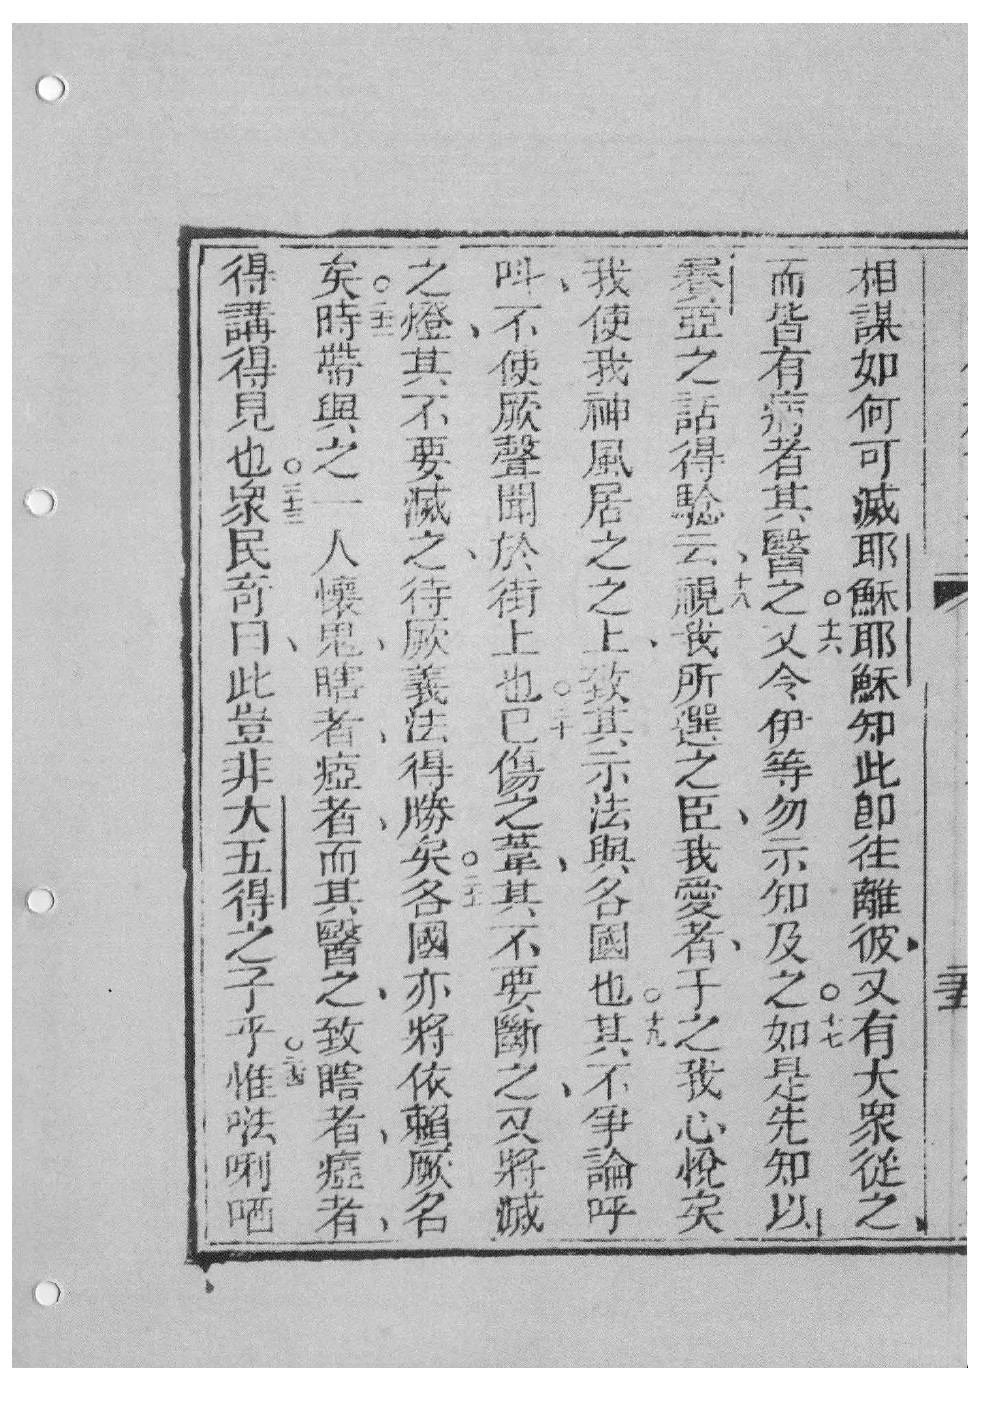 相謀如何可滅耶穌○十六耶穌知此卽往離彼、又有大衆從之、
而皆有病者其醫之又令伊等勿示知及之○十七如是先知以
賽亞之話得騐云、十八視我所選之臣、我愛者、于之我心悅矣
我使我神風居之之上、致其示法與各國也○十九其不爭論呼
叫、不使厥聲聞於街上也○二十已傷之葦、其不要斷之、又將滅
之燈、其不要滅之、待厥義法得勝矣○二十一各國亦將依賴厥名
矣○二十二時帶與之一人懷鬼、瞎者、瘂者、而其醫之、致瞎者、瘂者、
得講得見也○二十三衆民奇曰、此豈非大五得之子乎○二十四惟𠵽唎哂